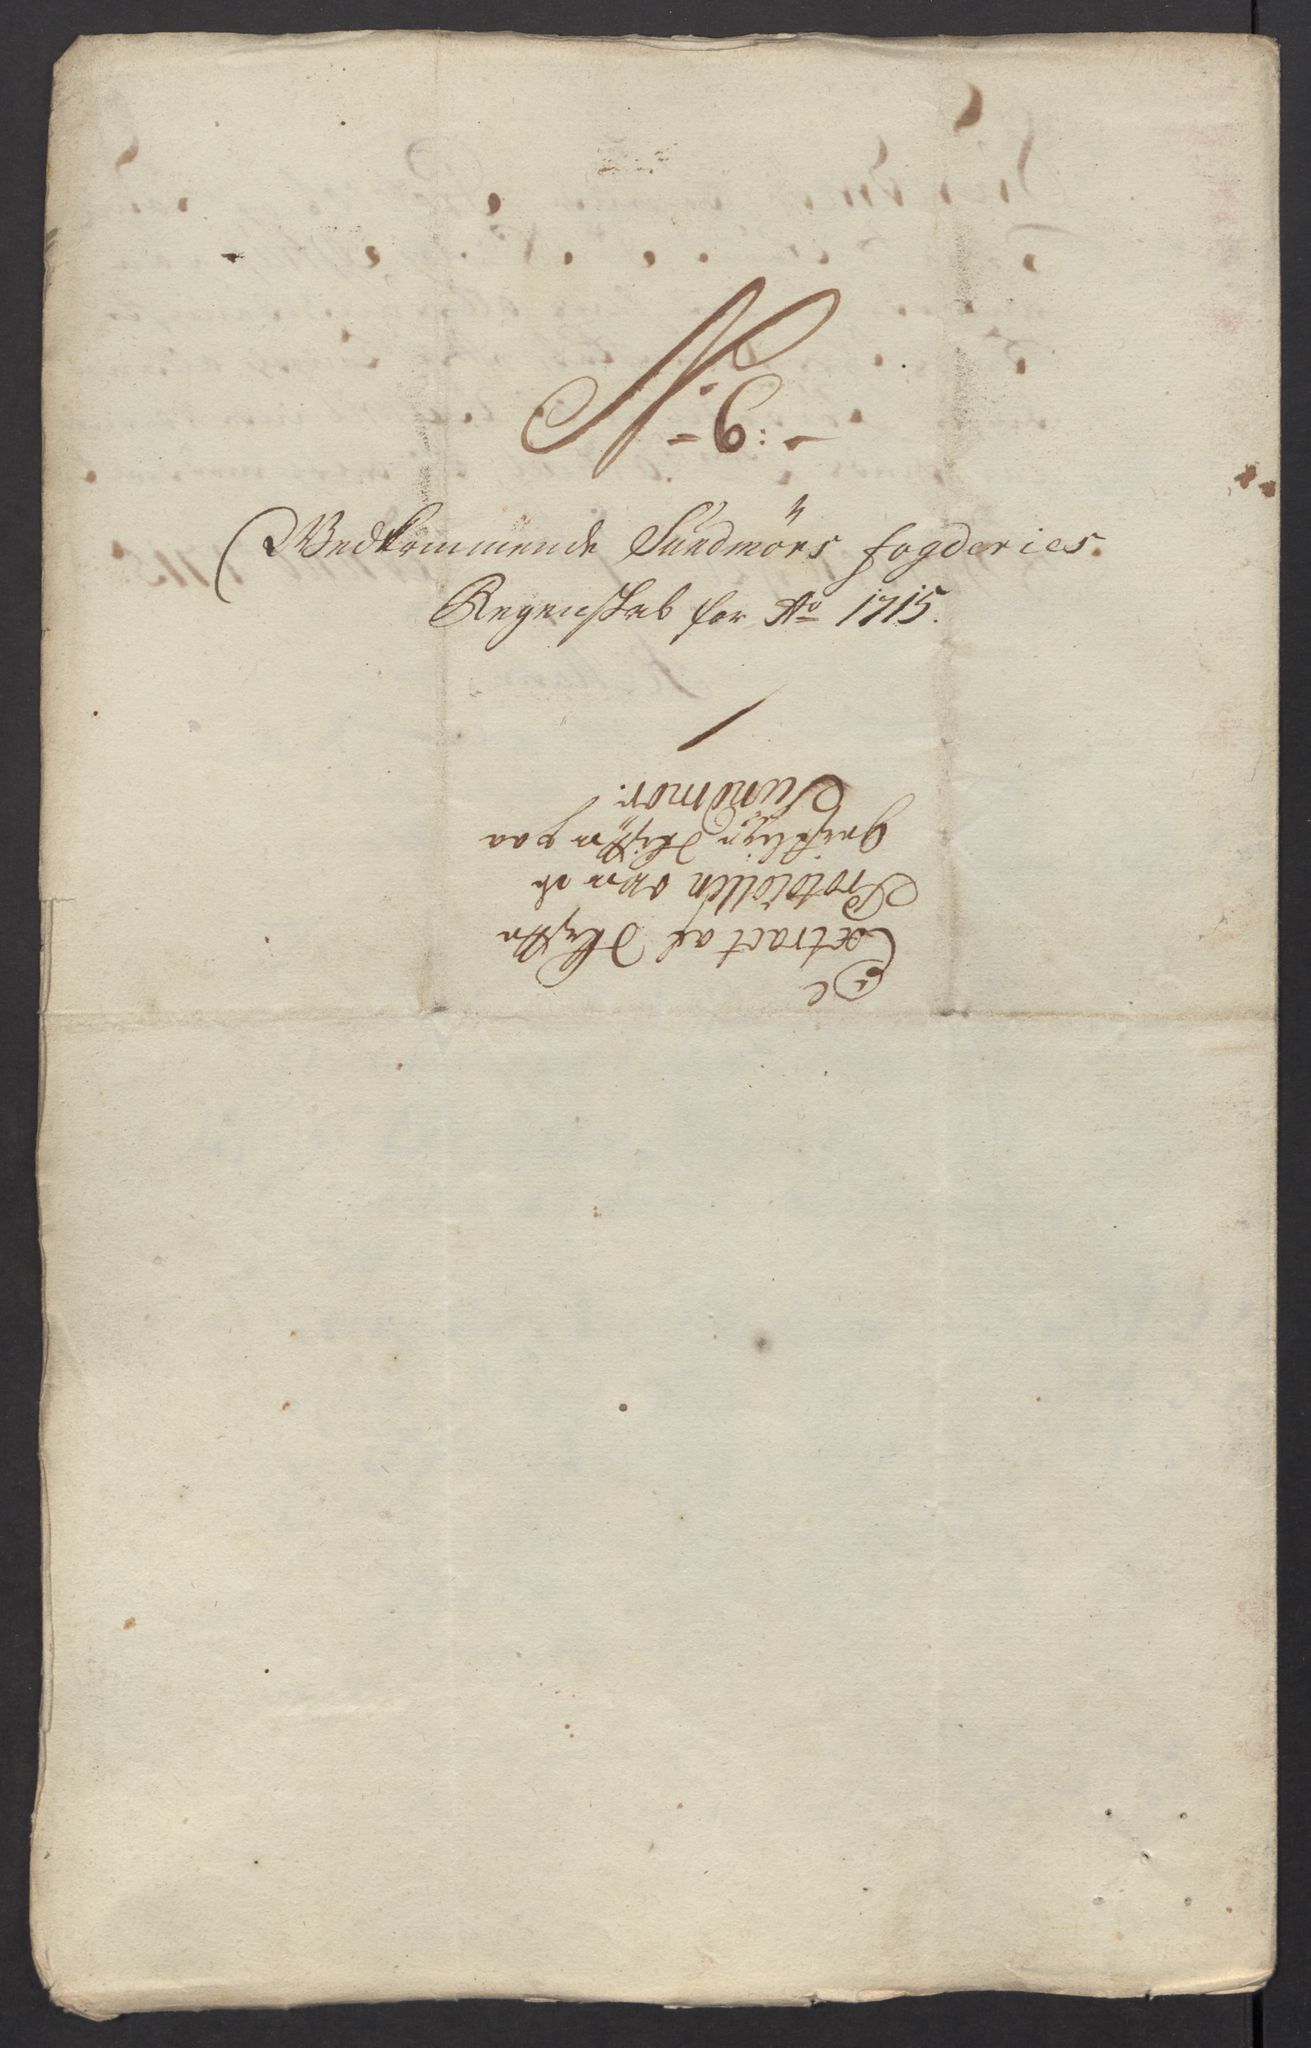 N. 6:
Vedkommende Sundmörs fogderies
Regenskab for Ao 1715.
Extract af Skifte
Protocollen over de
Geistlige Skifter paa
Sundmør.